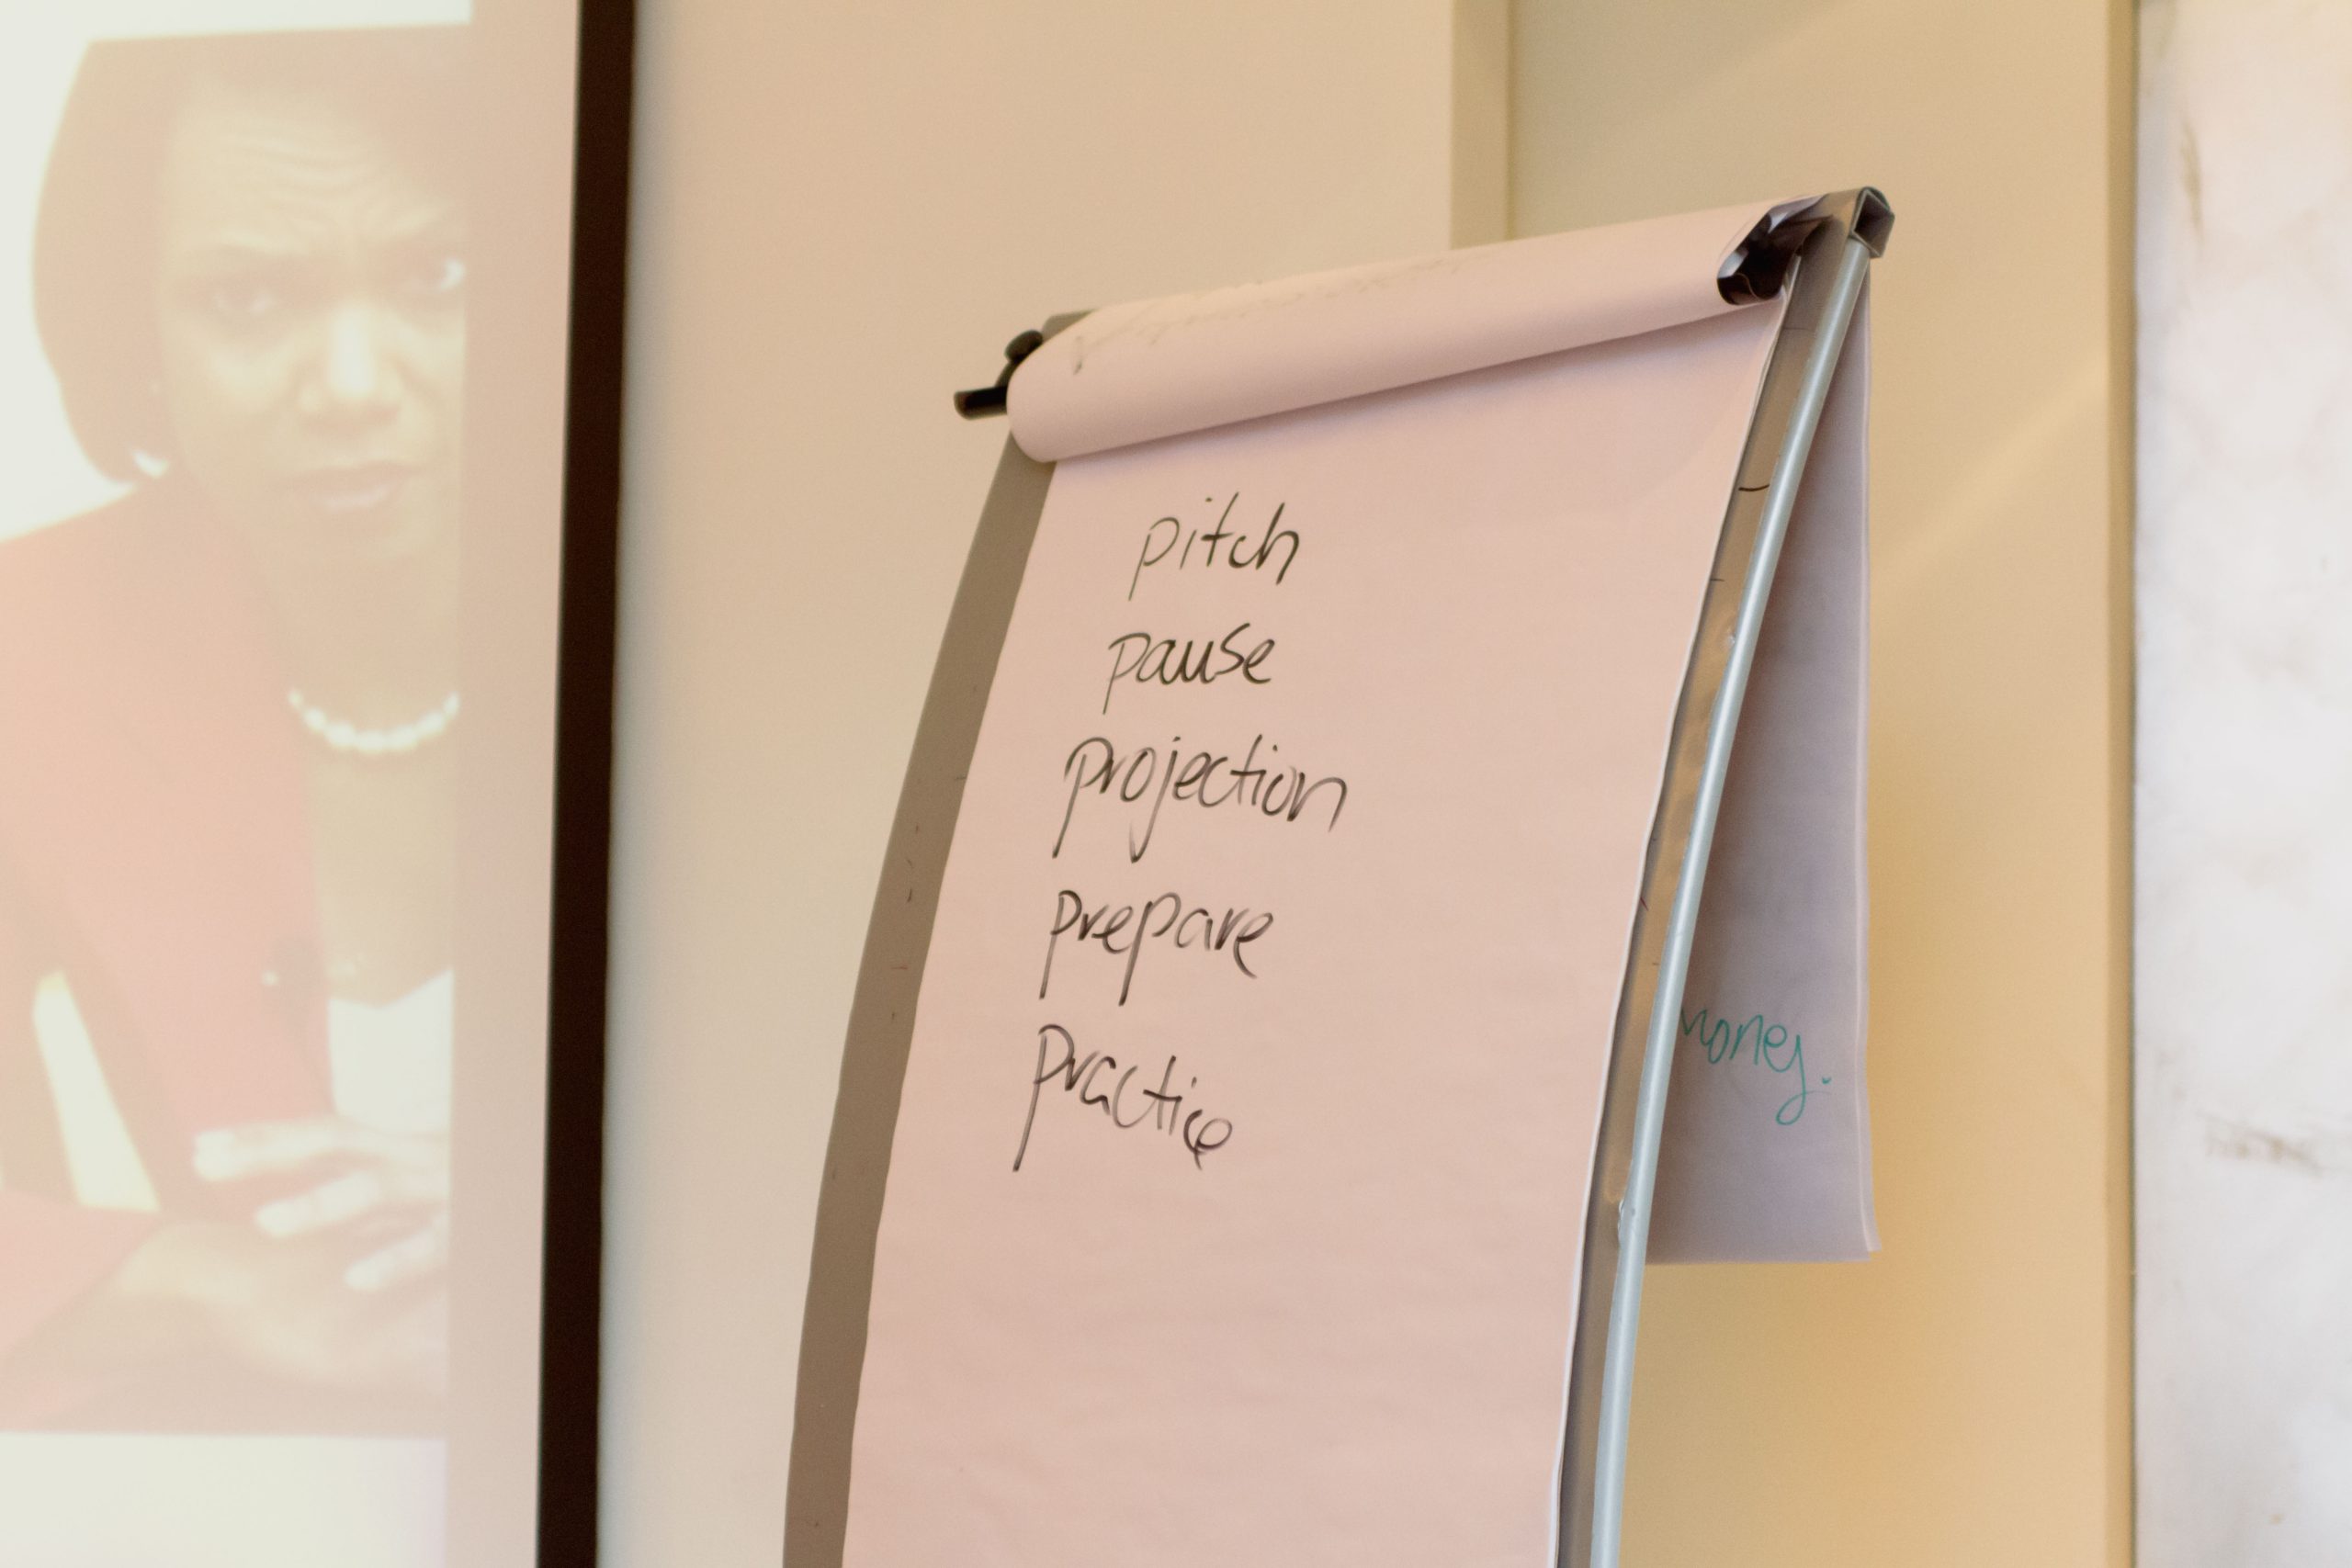 pitch
pause
projection
prepare
practice
money.